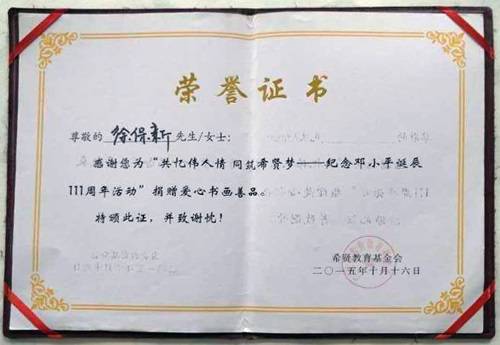 荣誉证书
尊敬的 徐保新 先生/女士:
感谢您为“共忆伟人情 同筑希贤梦——纪念邓小平诞辰
111周年活动”捐赠爱心书画善品。
特颁此证，并致谢忱！
希贤教育基金会
二〇一五年十月十六日